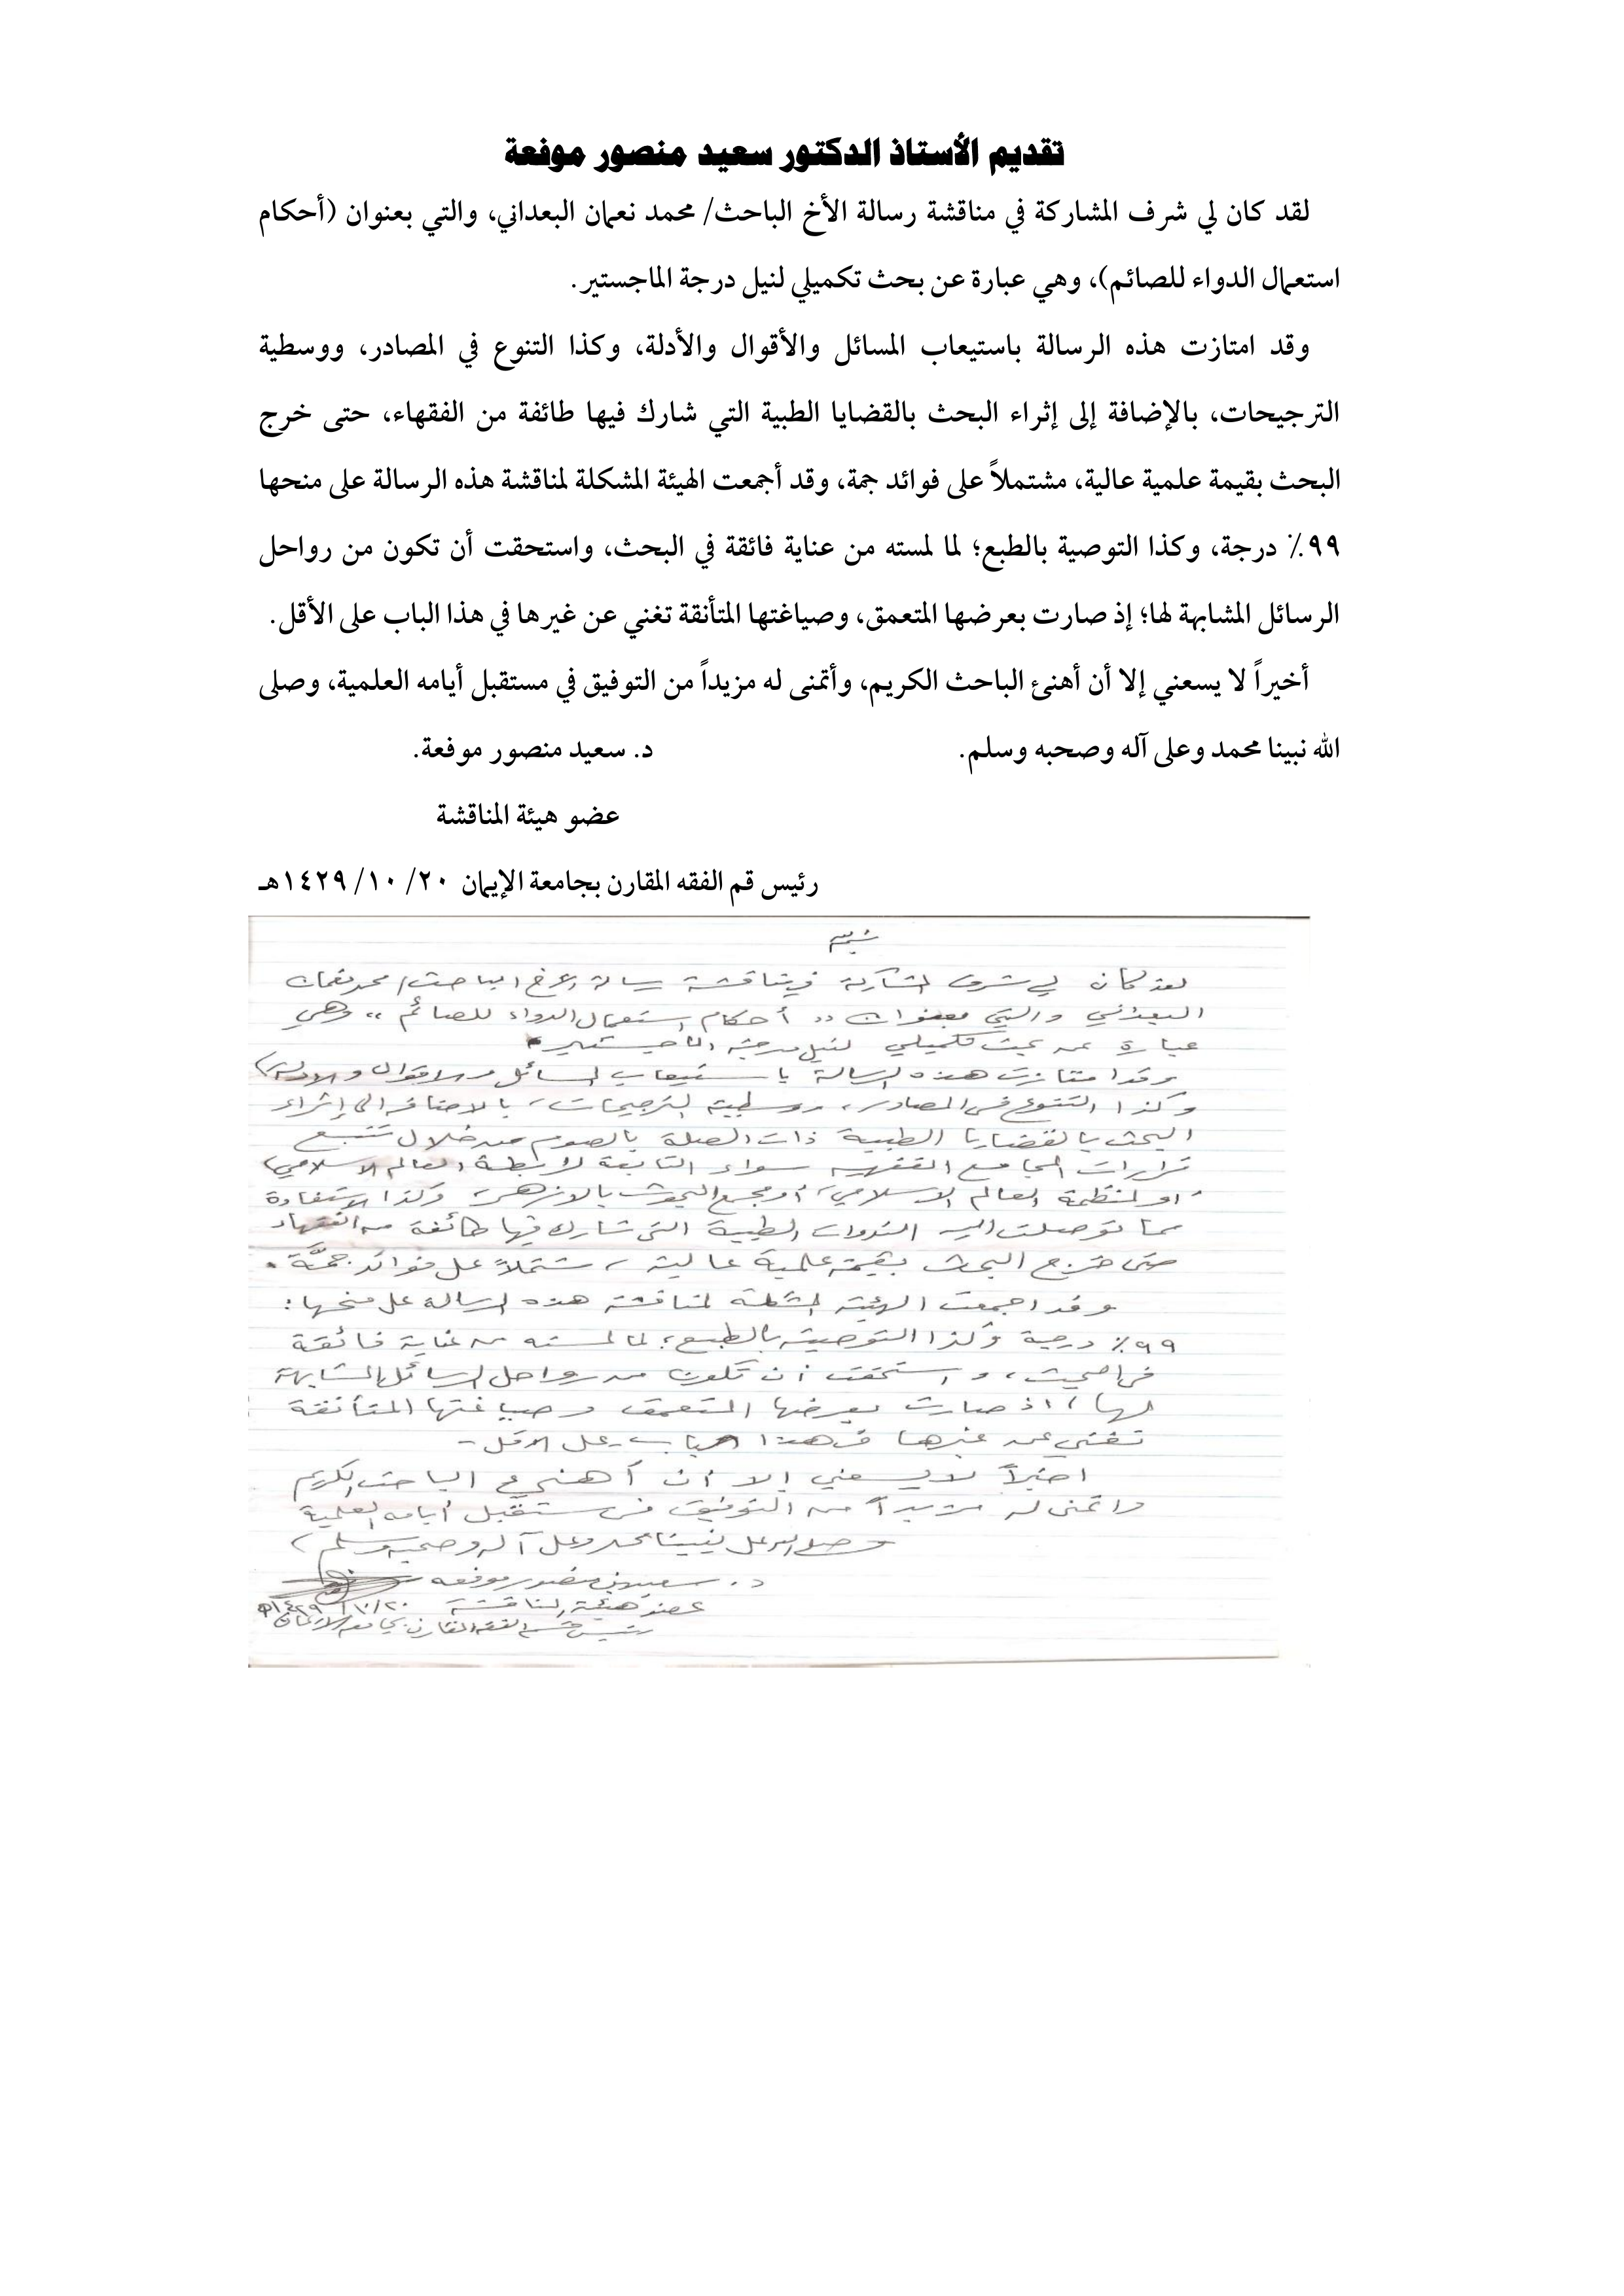 تقديم الأستاذ الدكتور سعيد منصور موفعة
لقد كان لي شرف المشاركة في مناقشة رسالة الأخ الباحث/ محمد نعمان البعداني، والتي بعنوان (أحكام
استعمال الدواء للصائم)، وهي عبارة عن بحث تكميلي لنيل درجة الماجستير.
وقد امتازت هذه الرسالة باستيعاب المسائل والأقوال والأدلة، وكذا التنوع في المصادر، ووسطية
الترجيحات، بالإضافة إلى إثراء البحث بالقضايا الطبية التي شارك فيها طائفة من الفقهاء، حتى خرج
البحث بقيمة علمية عالية، مشتملاً على فوائد جمة، وقد أجمعت الهيئة المشكلة لمناقشة هذه الرسالة على منحها
٩٩٪ درجة، وكذا التوصية بالطبع؛ لما لمسته من عناية فائقة في البحث، واستحقت أن تكون من رواحل
الرسائل المشابهة لها؛ إذ صارت بعرضها المتعمق، وصياغتها المتأنقة تغني عن غيرها في هذا الباب على الأقل.
أخيراً لا يسعني إلا أن أهنئ الباحث الكريم، وأتمنى له مزيداً من التوفيق في مستقبل أيامه العلمية، وصلى
الله نبينا محمد وعلى آله وصحبه وسلم. د. سعيد منصور موفعة.
عضو هيئة المناقشة
رئيس قم الفقه المقارن بجامعة الإيمان ٢٠/ ١٠/ ١٤٢٩هـ
لقد كان لي شرف المشاركة في مناقشة رسالة الأخ الباحث/ محمد نعمان
البعداني والتي بعنوان ,, أحكام استعمال الدواء للصائم ,, وهي
عبارة عن بحث تكميلي لنيل درجة الماجستير.
وقد امتازت هذه الرسالة باستيعاب المسائل والاقوال والادلة،
وكذا التنوع في المصادر، ووسطية الترجيحات، بالاضافة الى إثراء
البحث بالقضايا الطبية ذات الصلة بالصوم من خلال تتبع
قرارات المجامع الفقهيه سواء التابعة لرابطة العالم الاسلامي،
او لمنظمة العالم الاسلامي، أو مجمع البحوث بالازهر، وكذا الاستفادة
مما توصلت اليه الندوات الطبية التي شارك فيها طائفة من الفقهاء
حتى خرج البحث بقيمة علمية عالية، مشتملاً على فوائد جمَّة.
وقد اجمعت الهيئة المشكلة لمناقشة هذه الرسالة على منحها:
٩٩٪ درجة وكذا التوصية بالطبع؛ لما لمسته من عناية فائقة
في البحث، واستحقت أن تكون من رواحل الرسائل المشابهة
لها، اذ صارت بعرضها المتعمق وصياغتها المتأنقة
تغني عن غيرها في هذا الباب على الاقل -
اخيراً لا يسعني إلا أن أهنئ الباحث الكريم
واتمنى له مزيداً من التوفيق في مستقبل أيامه العلمية
وصلى الله على نبينا محمد وعلى آله وصحبه وسلم،
د. سعيد منصور موفعه
عضو هيئة المناقشة ٢٠/١٠/١٤٢٩هـ
رئيس قسم الفقه المقارن بجامعة الايمان